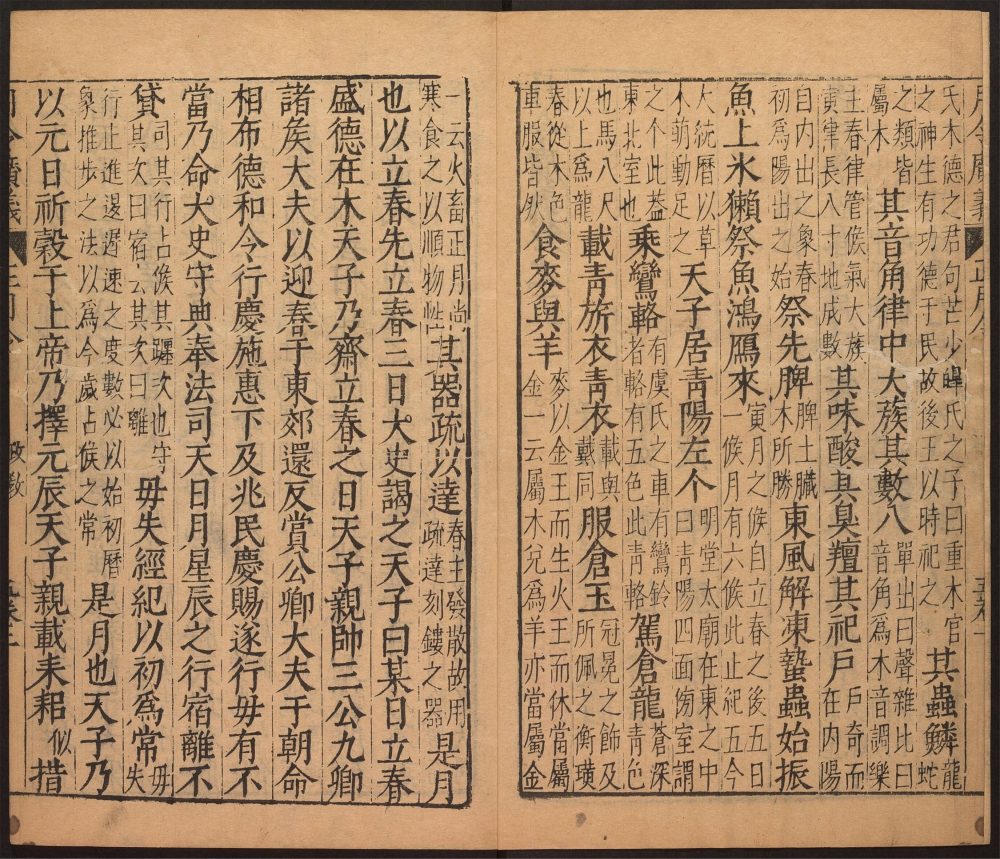 月令廣義 正月令
氏木德之君句芒少皥氏之子曰重木官之神生有功德于民故後王以時祀之其蟲鱗龍蛇
之類皆屬木其音角律中大蔟其數八單出曰聲雜比曰音角爲木音調樂
主春律管候氣大蔟寅律長八寸地成數其味酸其臭羶其祀戶戶奇而在內陽
自内出之象春初爲陽出之始祭先脾脾土臟木所勝東風解凍蟄蟲始振
魚上氷獺祭魚鴻鴈來寅月之候自立春之後五日一候月有六候此止紀五今
大統曆以草木萌動足之天子居靑陽左个明堂太廟在東之中曰靑陽四面傍室謂
之个此蓋東北室也乘鸞輅有虞氏之車有鸞鈴者輅有五色此靑輅駕倉龍蒼深靑色
也馬八尺以上爲龍載靑旂衣靑衣載與戴同服倉玉冠冕之飾及所佩之衡璜
春從木色車服皆然食麥與羊麥以金王而生火王而休當屬金一云屬木兌爲羊亦當屬金
一云火畜正月尚寒食之以順物性其器疏以達春主發散故用疏達刻鏤之器是月
也以立春先立春三日大史謁之天子曰某日立春
盛德在木天子乃齋立春之日天子親帥三公九卿
諸矦大夫以迎春于東郊還反賞公卿大夫于朝命
相布德和令行慶施惠下及兆民慶賜遂行毋有不
當乃命大史守典奉法司天日月星辰之行宿離不
貸司其行占候其躔次也守其次曰宿去其次曰離毋失經紀以初爲常毋失
行止進退遲速之度數必以始初曆象推步之法以爲今歲占候之常是月也天子乃
以元日祈穀于上帝乃擇元辰天子親載耒耜似措
月令廣義 正月令